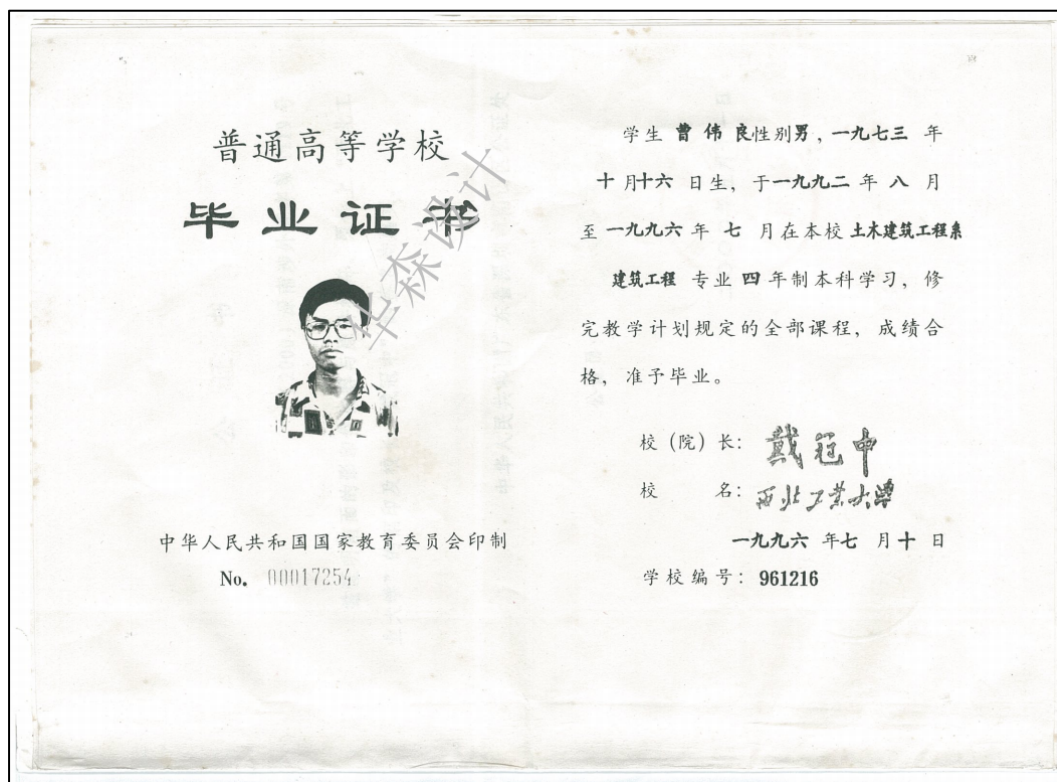 普通高等学校
毕业证书
华森设计
中华人民共和国国家教育委员会印制
No. 00017254
学生 曹伟良性别男，一九七三 年
十月十六 日生，于一九九二 年 八 月
至 一九九六 年 七 月在本校 土木建筑工程系
建筑工程 专业 四 年制本科学习，修
完教学计划规定的全部课程，成绩合
格，准予毕业。
校（院）长：戴冠中
校 名：西北工业大学
一九九六 年七 月十 日
学校编号：961216